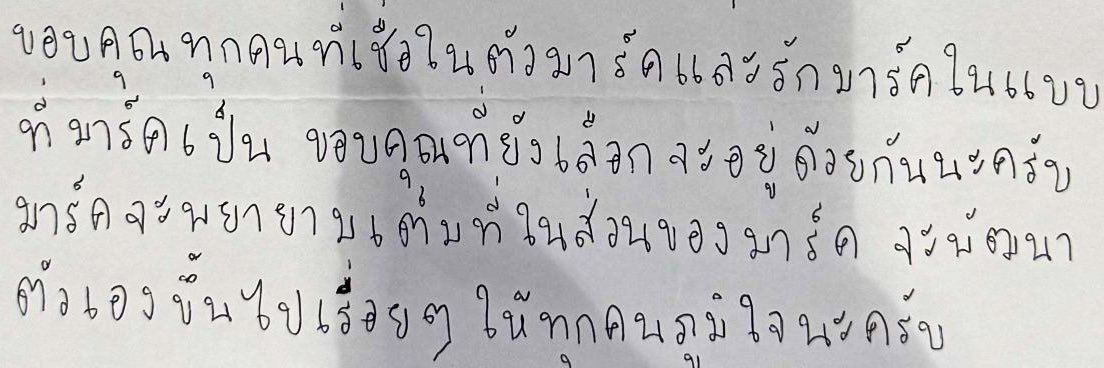 ขอบคุณทุกคนที่เชื่อในตัวมาร์คและรักมาร์คในแบบ
ที่มาร์คเป็น ขอบคุณที่ยังเลือกจะอยู่ด้วยกันนะครับ
มาร์คจะพยายามเต็มที่ในส่วนของมาร์ค จะพัฒนา
ตัวเองขึ้นไปเรื่อยๆ ให้ทุกคนภูมิใจนะครับ